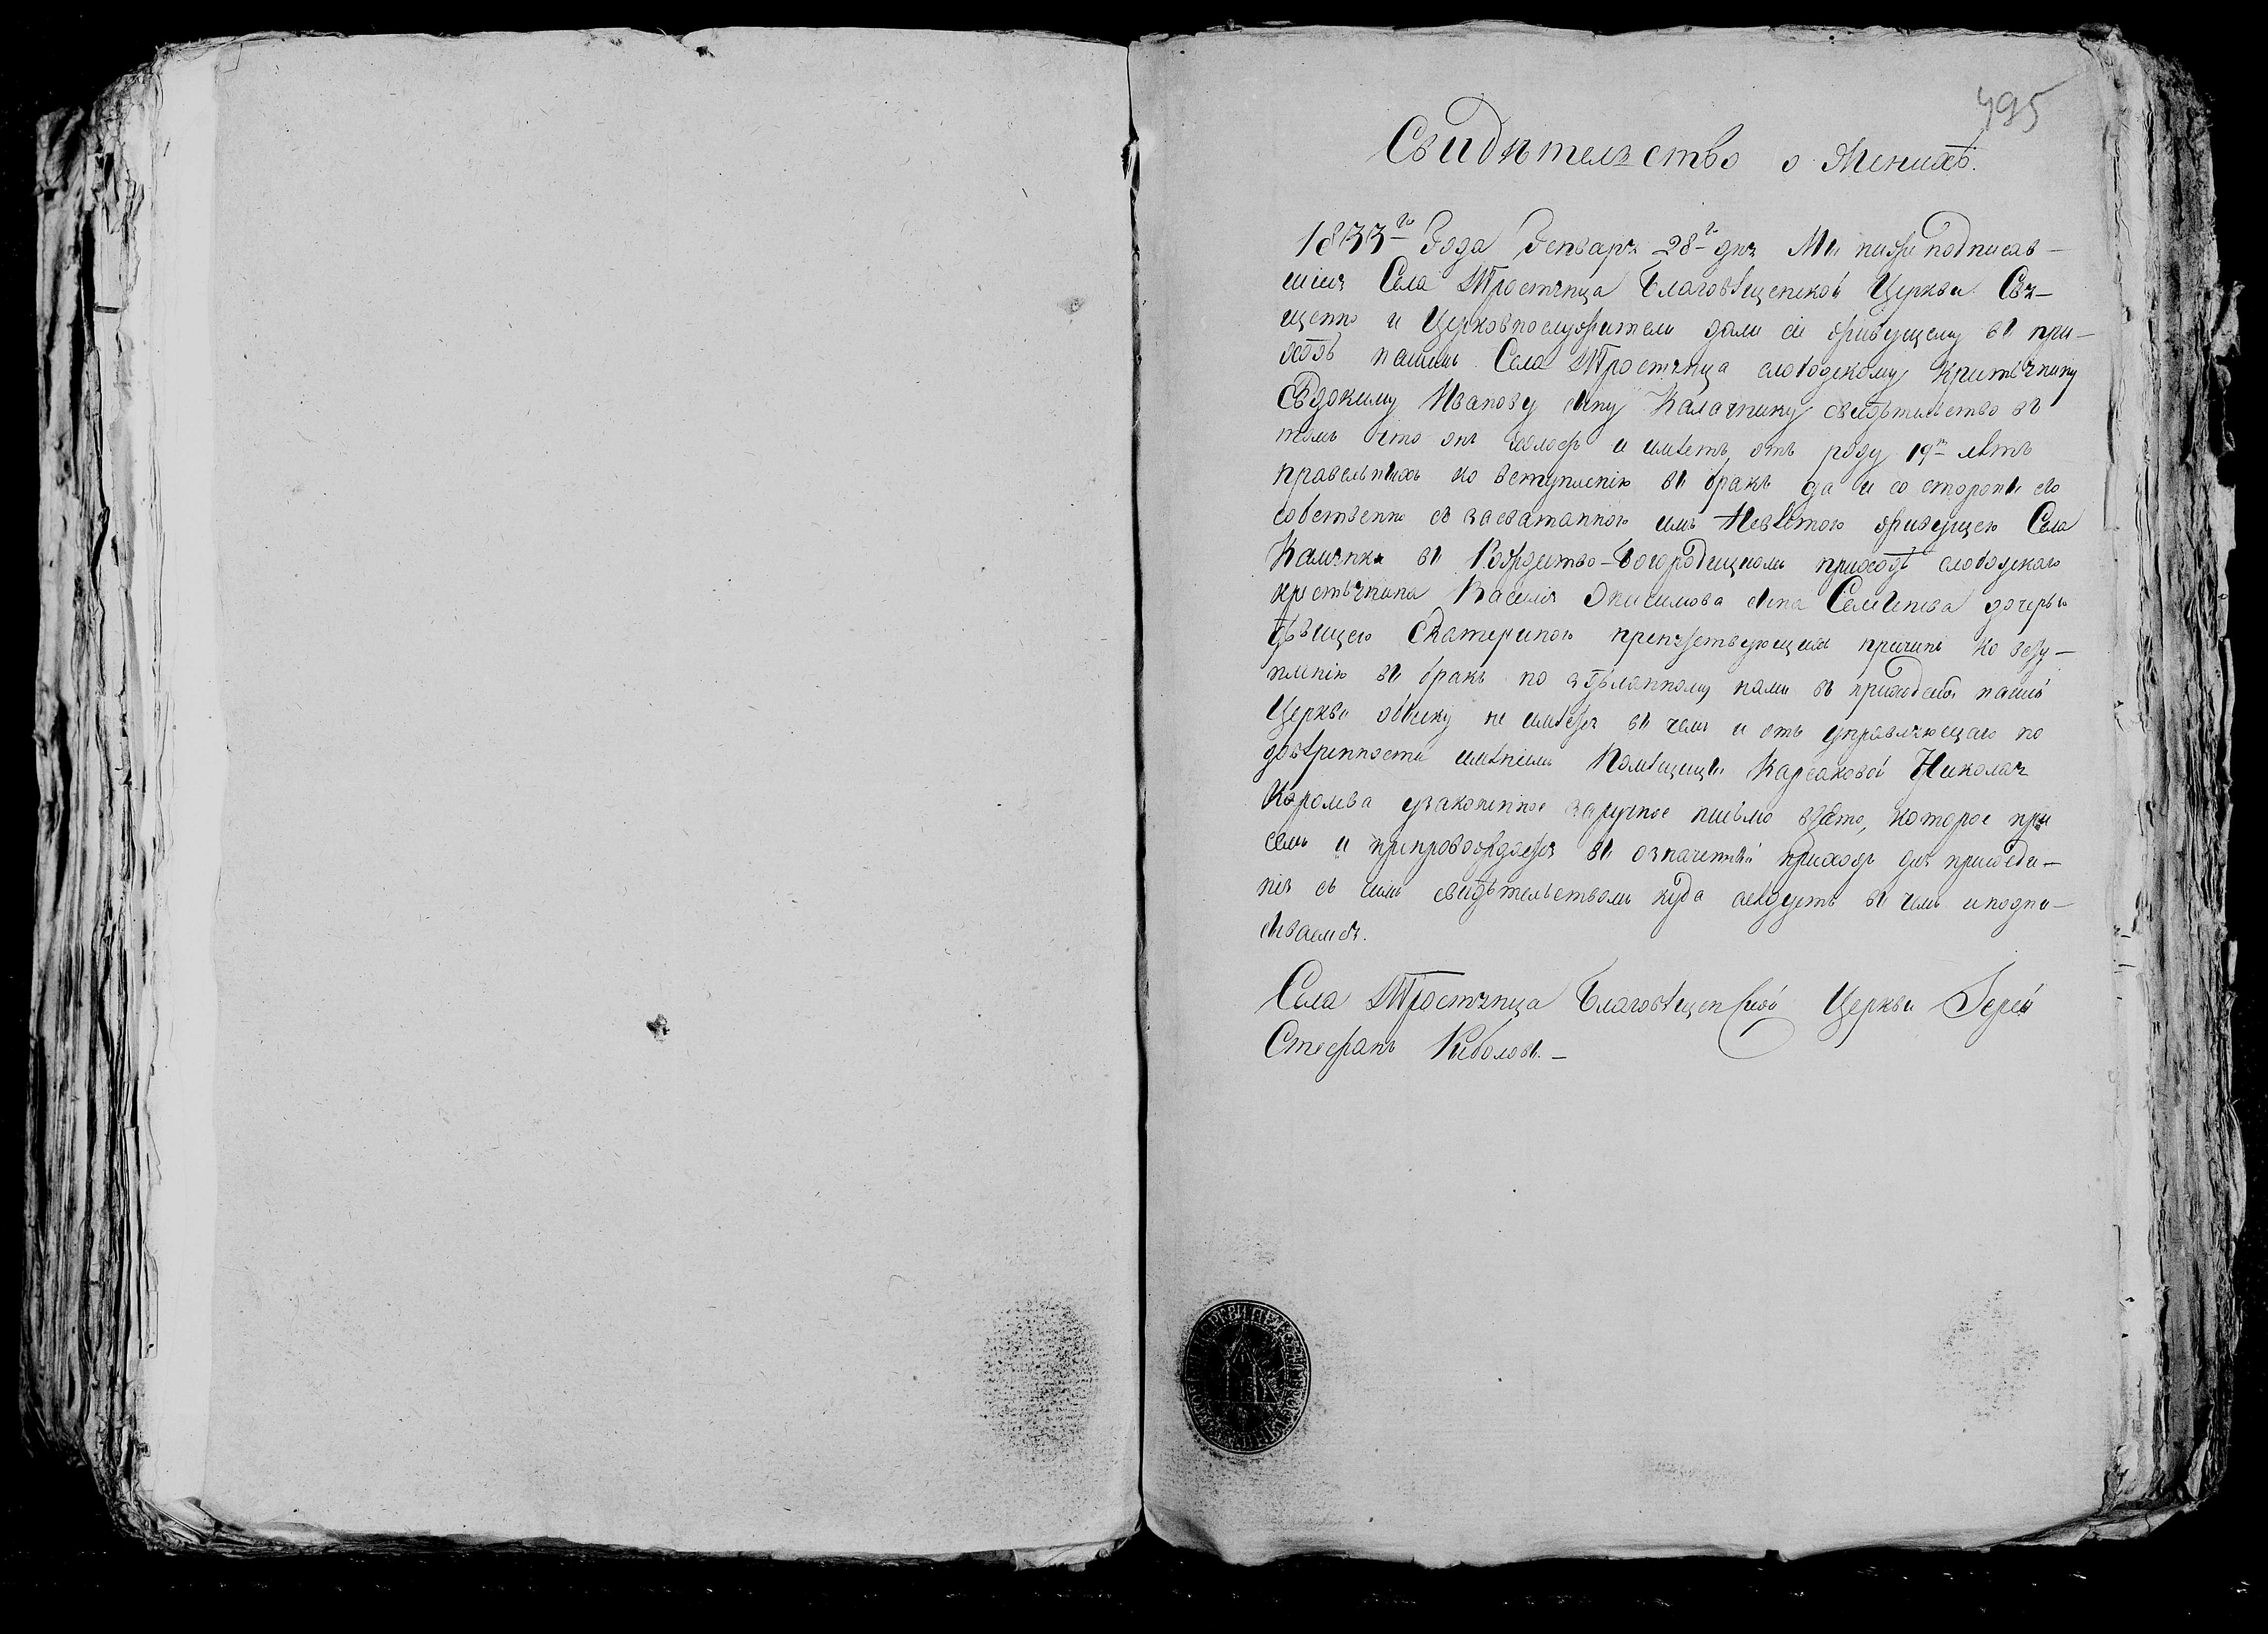 495
Свидѣтельство о Женихѣ.
1833го Года Генваря 28го дня Мы ниже подписав–
шіися Села Тростянца Благовѣщенской Церкви Свя–
щенно и Церковнослужители дали сіе живущему въ при–
ходѣ нашемъ Села Тростянца слободскому Кристьянину
Евдокиму Иванову сыну Калачнику свидѣтельство въ
томъ что онъ холостъ и имѣетъ отъ роду 19ть лѣтъ
правельныхъ ко вступленію въ бракъ да и со стороны его
собственно съ засватанною имъ Невѣстою живущею Села
Камянки въ Рождество–Богородицкомъ приходѣ слободскаго
кристьянина Василія Онисимова сына Семѣнева дочерью
дѣвицею Екатериною препятствующихъ причинъ ко всту–
пленію въ бракъ по здѣланному нами въ приходской нашей
Церкви обыску не имѣется въ чемъ и отъ управляющаго по
довѣренности имѣніемъ Помѣщицы Карсаковой Николая
Королева узаконенное заручное письмо взято, которое при
семъ и припровождается въ означенный приходъ для приобще–
нія съ симъ свидѣтельствомъ куда слѣдуетъ въ чемъ и подпи–
сываемся.
Села Тростянца Благовѣщенской Церкви Іерей
Стефанъ